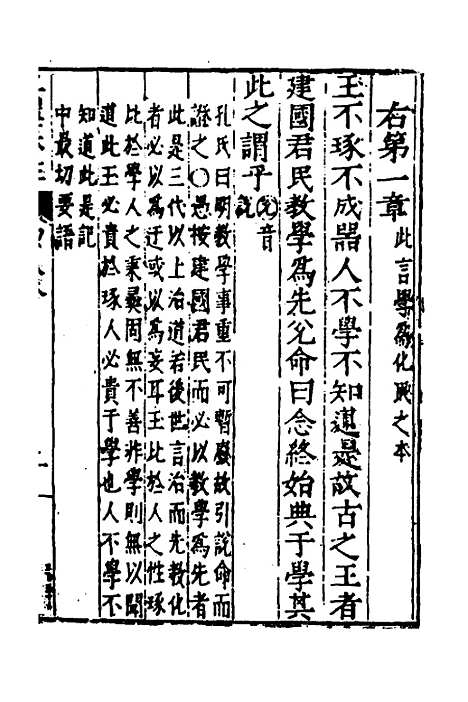 右第一章此言學爲化民之本
玉不琢不成器人不學不知道是故古之王者
建國君民教學爲先兊命曰念終始典于學其
此之謂乎兊音說
孔氏曰明教學事重不可暫廢故引說命而
證之○愚按建國君民而必以教學爲先者
此是三代以上治道若後世言治而先教化
者必以爲迂或以爲妄耳玉比於人之性琢
比於學人之秉彛固無不善非學則無以聞
道此玉必貴於琢人必貴于學也人不學不
知道此是記
中最切要語